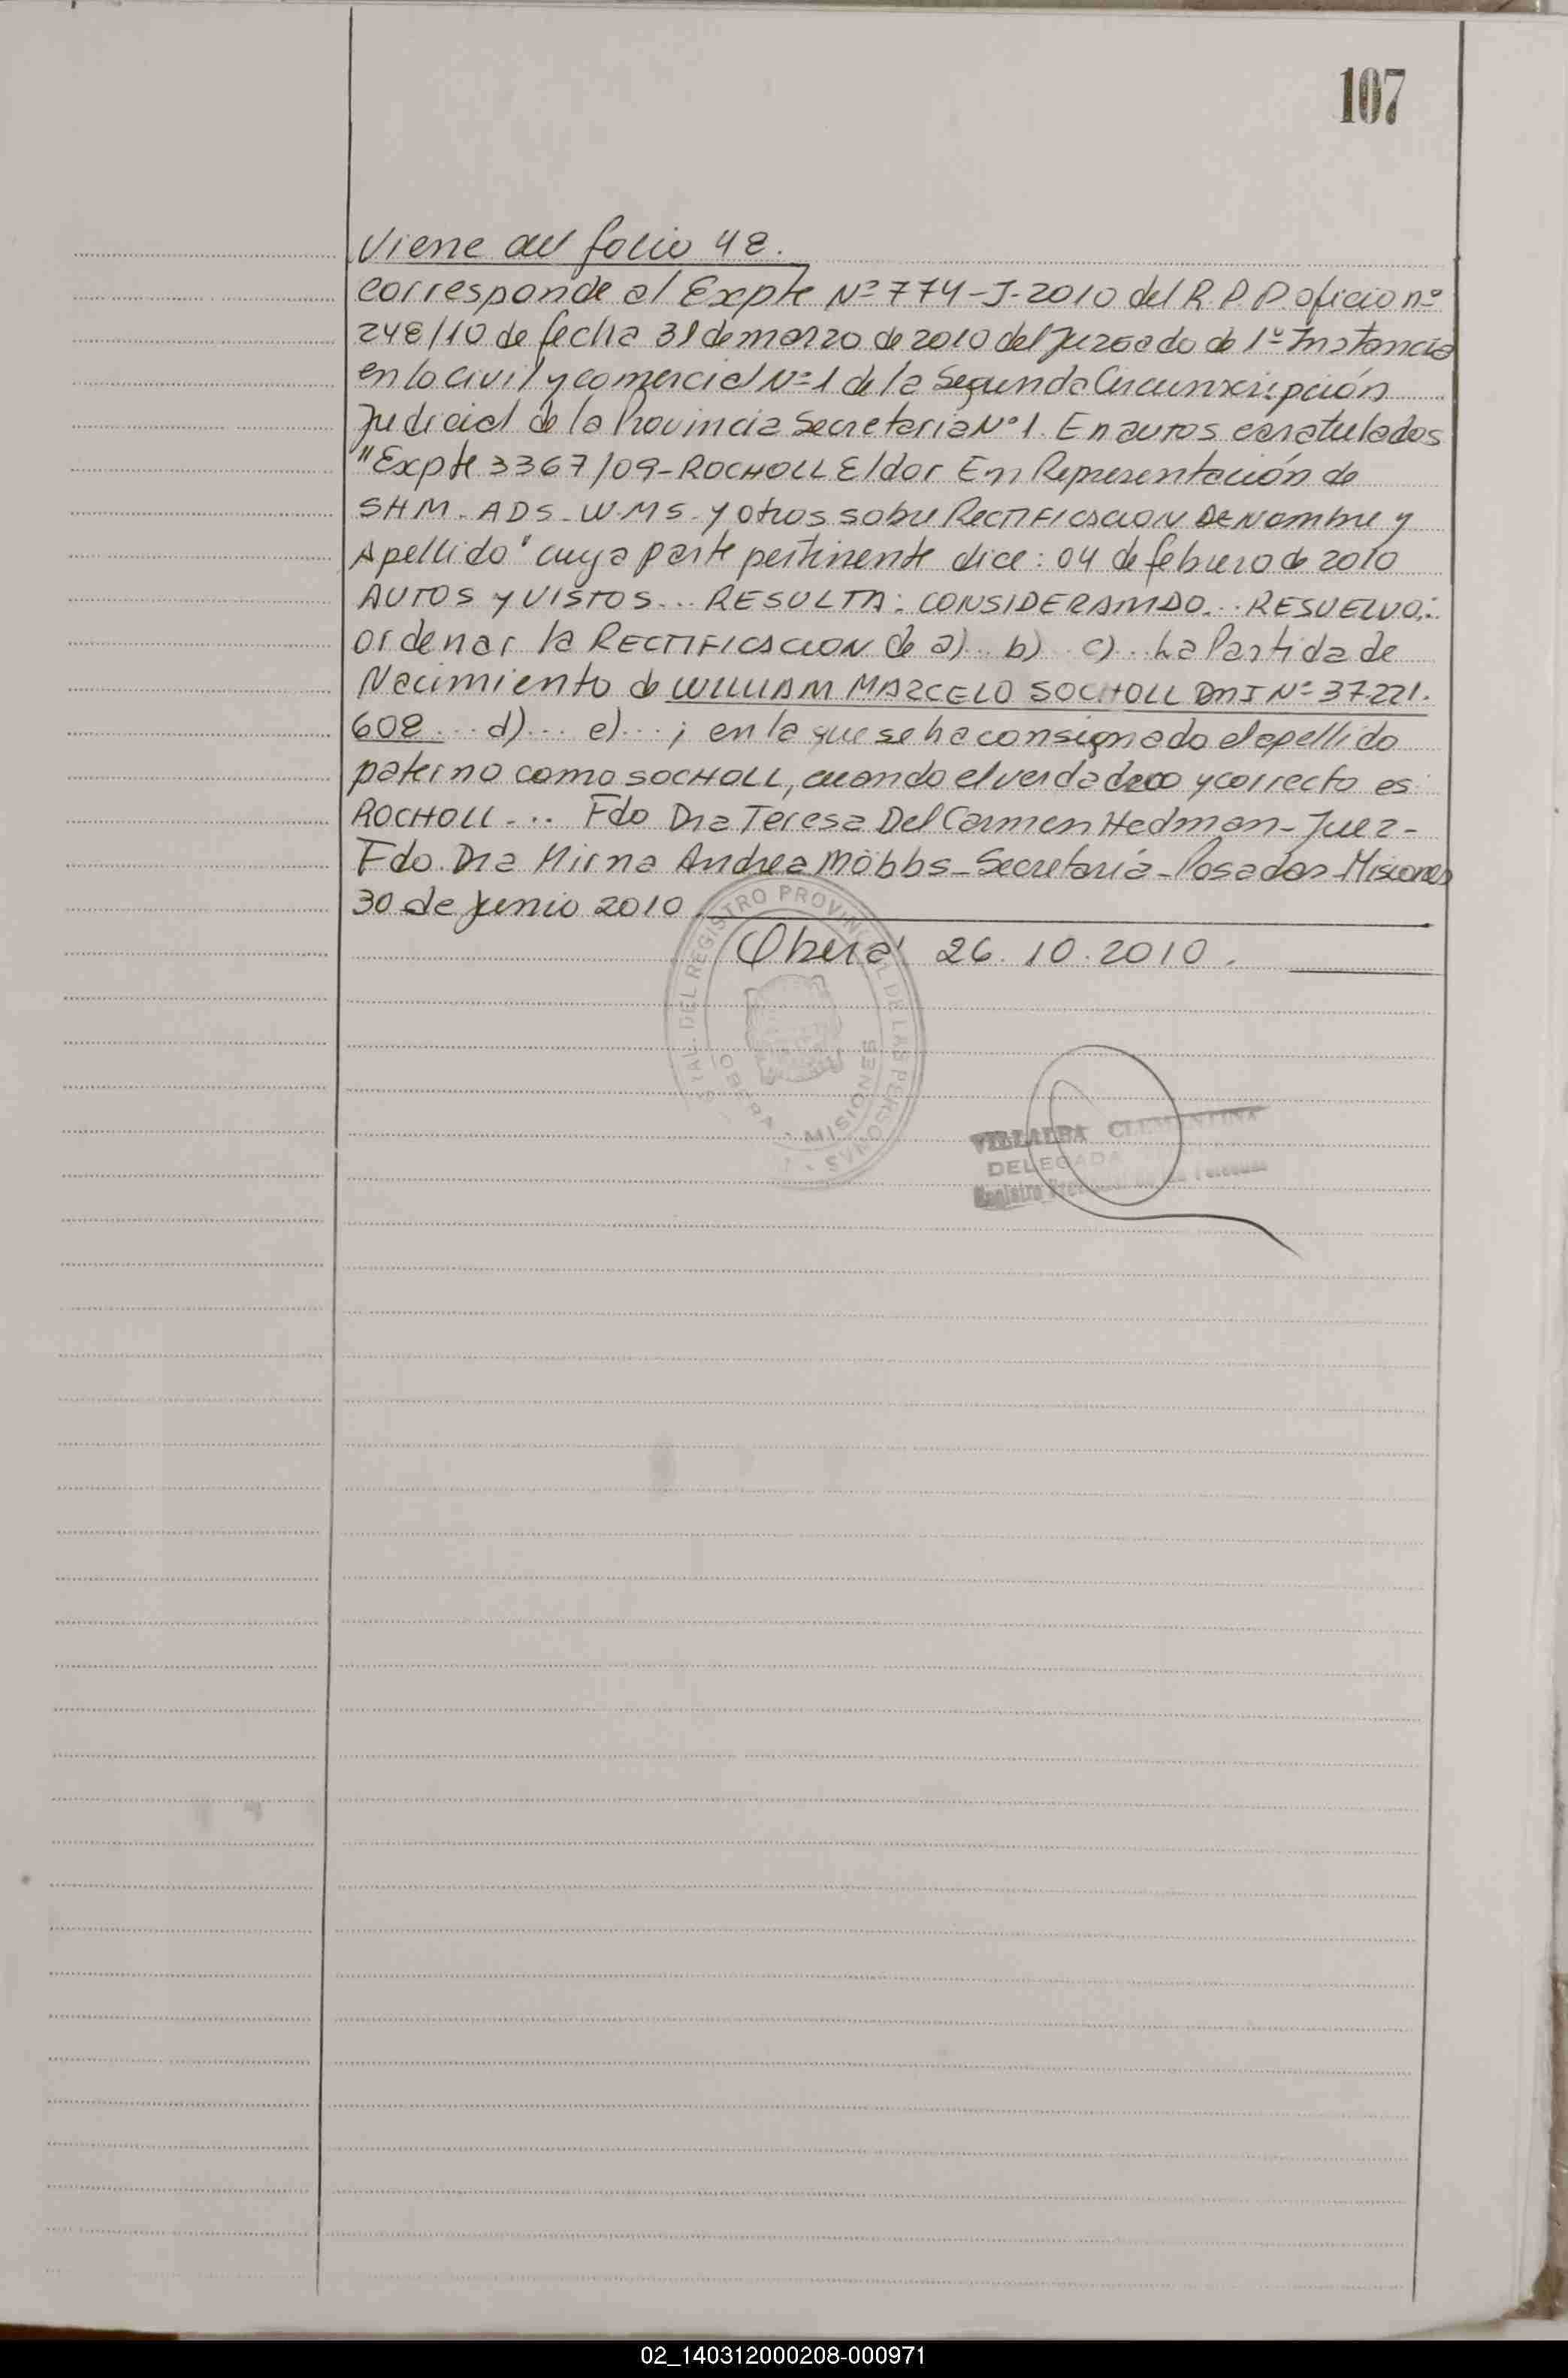 107
Viene del folio 48.
Corresponde al Expte Nº 774-J-2010 del R.P.P. oficio nº
248/10 de fecha 31 de marzo de 2010 del Juzgado de 1º Instancia
en lo civil y comercial Nº 1 de la Segunda Circunscripción
Judicial de la Provincia Secretaria Nº 1. En autos caratulados
"Expte 3367/09-ROCHOLL Eldor En Representación de
SHM- ADS- W.MS- y otros sobre RECTIFICACION DE Nombre y
Apellido" cuya parte pertinente dice: 04 de febrero de 2010
AUTOS y VISTOS... RESULTA: CONSIDERANDO... RESUELVO:
ordenar la RECTIFICACION de a)... b)... c)... La Partida de
Nacimiento de WILLIAM MARCELO SOCHOLL DNI Nº 37.221.
608... d)... e)...; en la que se ha consignado el apellido
paterno como SOCHOLL, cuando el verdadero y correcto es
ROCHOLL-... Fdo Dra Teresa Del Carmen Hedman-Juez-
Fdo. Dra Mirna Andrea Möbbs-Secretaria-Posadas-Misiones
30 de Junio 2010.
Oberá 26.10.2010.
DEL REGISTRO PROVINCIAL DE LAS PERSONAS
OBERA - MISIONES
VILLALBA CLEMENTINA
DELEGADA
Registro Provincial de las Personas
02_140312000208-000971